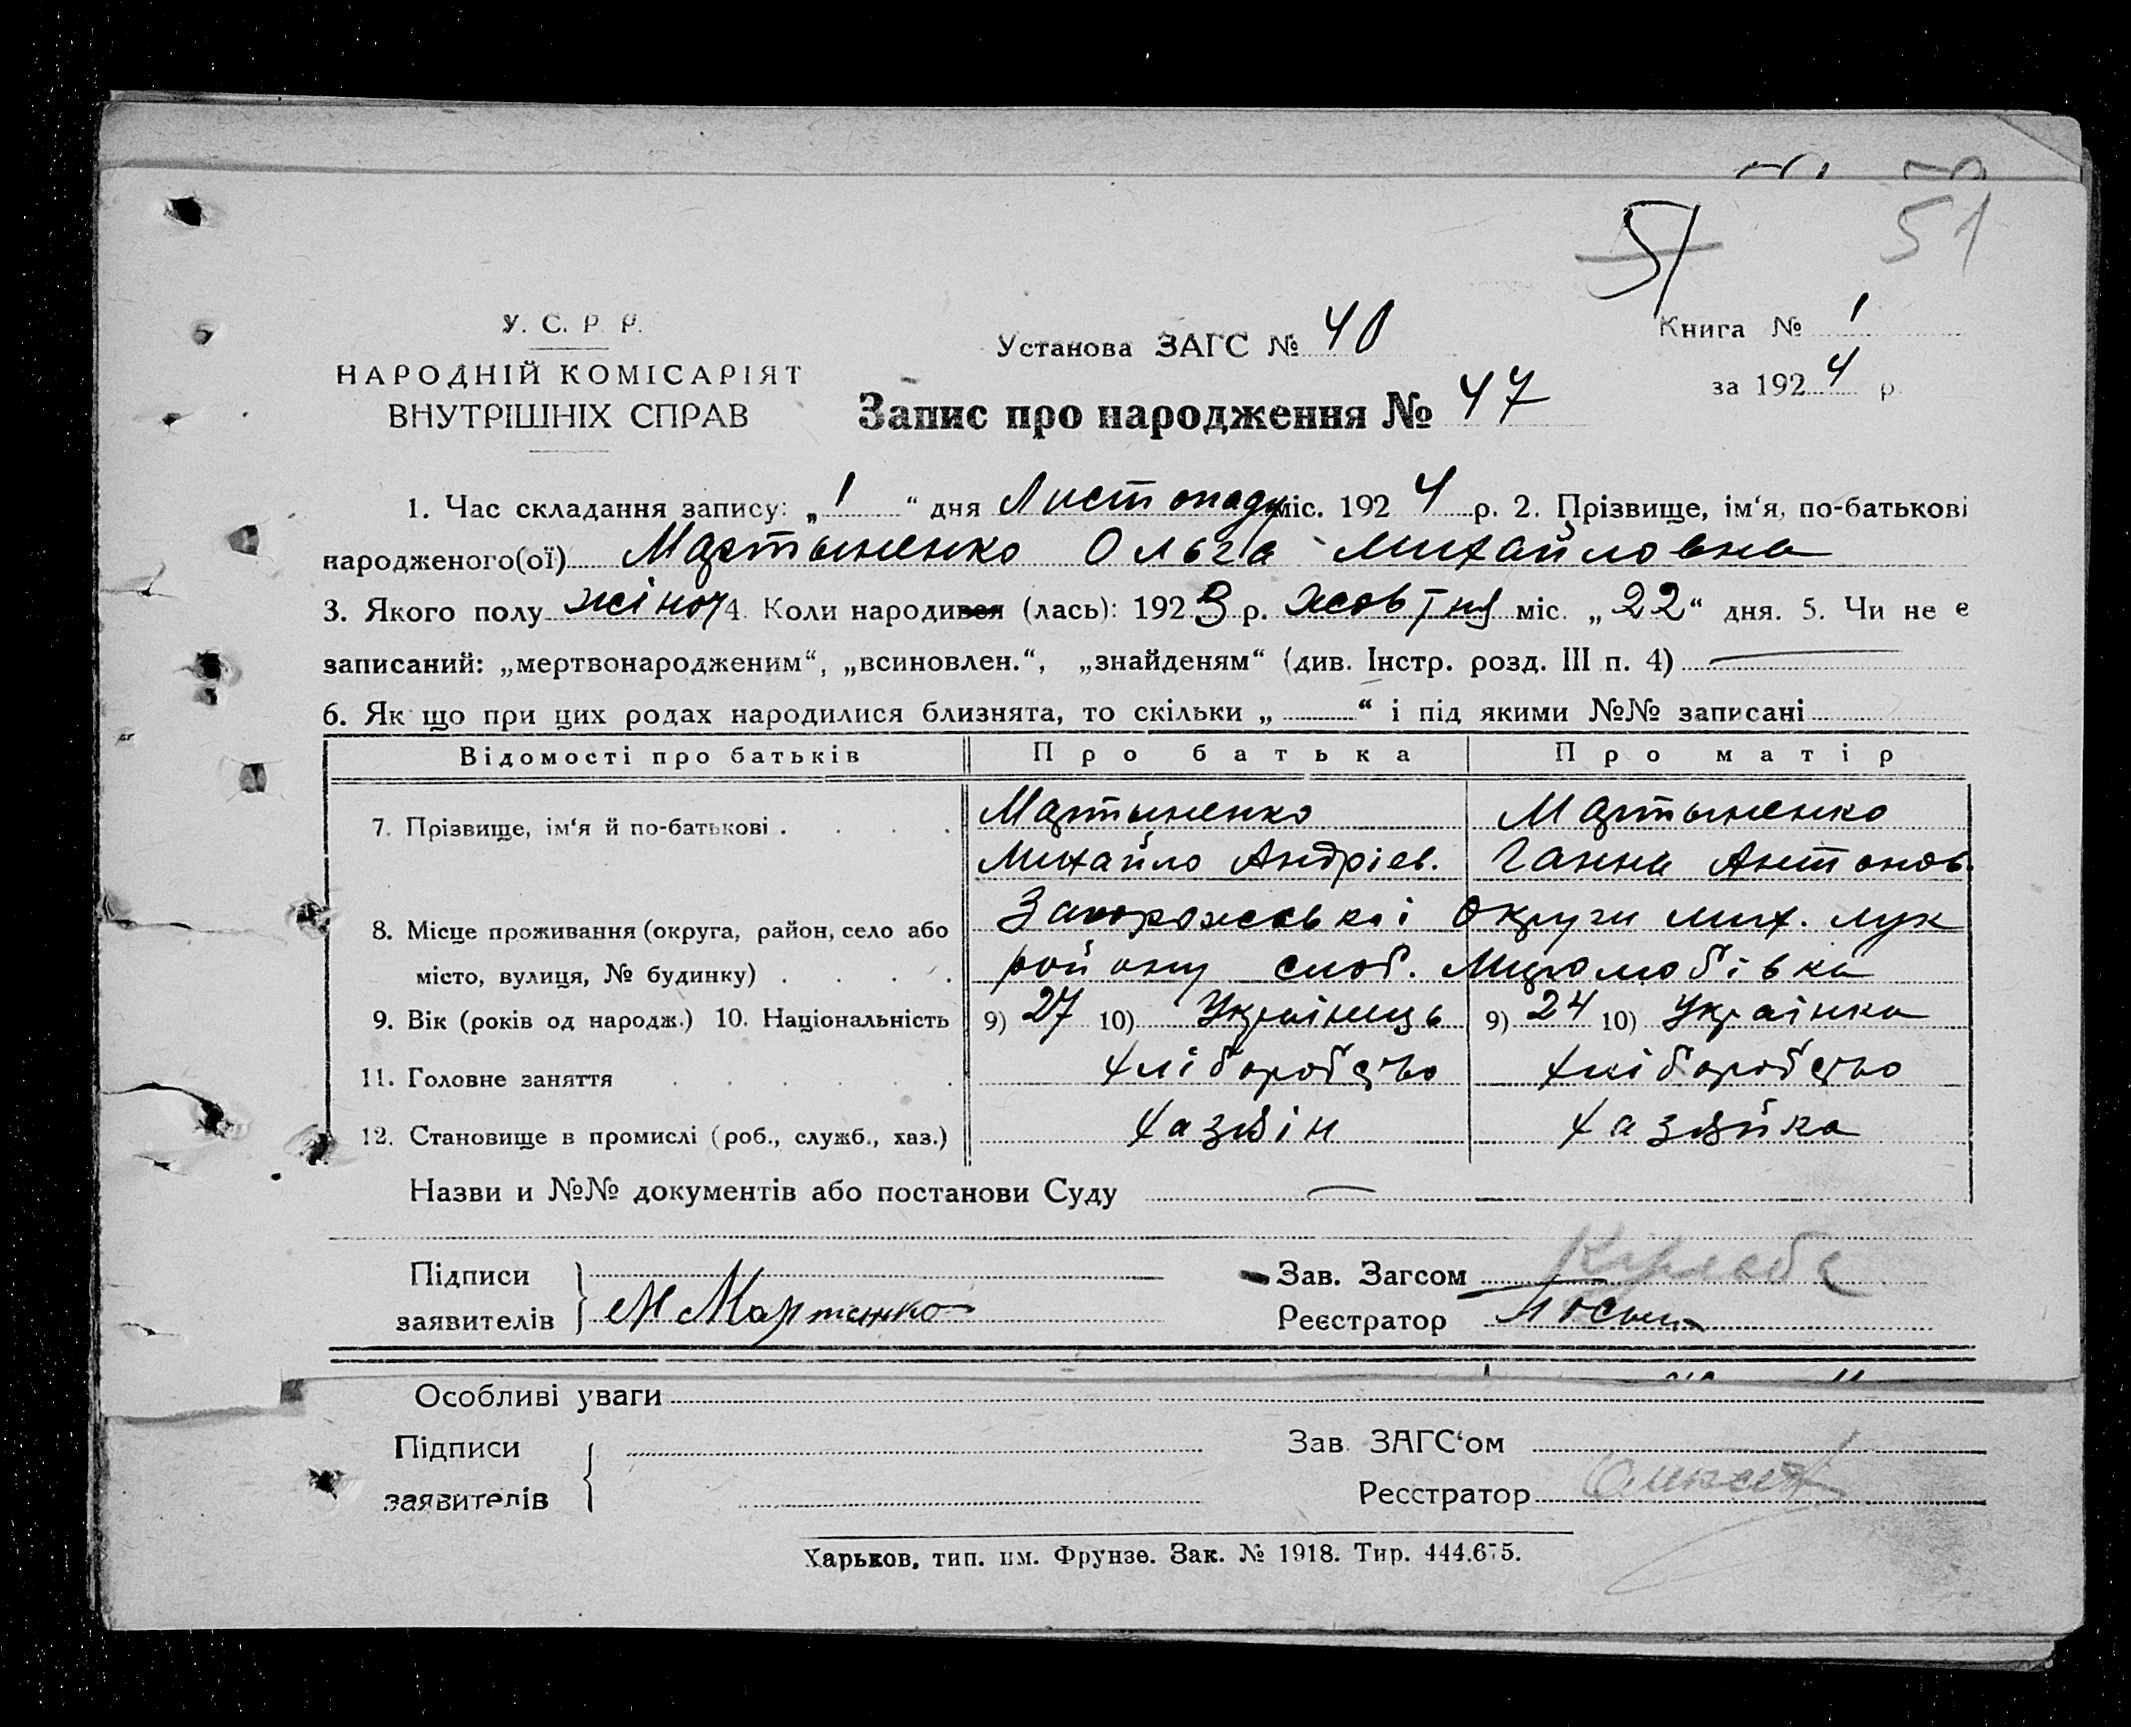 51
51
У. С. Р. Р.
НАРОДНІЙ КОМІСАРІЯТ
ВНУТРІШНІХ СПРАВ
Установа ЗАГС № 40
Книга № 1
за 1924 р.
Запис про народження № 47
1. Час складання запису: „1“ дня Листопаду міс. 1924 р. 2. Прізвище, ім‘я, по-батькові
народженого(ої) Мартыненко Ольга Михайловна
3. Якого полу жіноч 4. Коли народився (лась): 1923 р. жовтня міс. „22“ дня. 5. Чи не є
записаний: „мертвонародженим“, „всиновлен.“, „знайденям“ (див. Інстр. розд. III п. 4)
6. Як що при цих родах народилися близнята, то скільки „ “ і під якими №№ записані
Відомості про батьків Про батька Про матір
7. Прізвище, ім‘я й по-батькові . Мартыненко Мартыненко
Михайло Андріев. Ганна Антонов.
8. Місце проживання (округа, район, село або Запорожської Округи Мих. Лук
місто, вулиця, № будинку) . району слоб. Миролюбівка
9. Вік (років од народж.) 10. Національність 9) 27 10) Українець 9) 24 10) Українка
11. Головне заняття хліборобство хліборобство
12. Становище в промислі (роб., служб., хаз.) хазяін хазяйка
Назви и №№ документів або постанови Суду
Підписи Зав. Загсом
заявителів М Мартенко Реєстратор
Особливі уваги
Підписи Зав. ЗАГС‘ом
заявителів Реєстратор
Харьков, тип. им. Фрунзе. Зак. № 1918. Тир. 444.675.